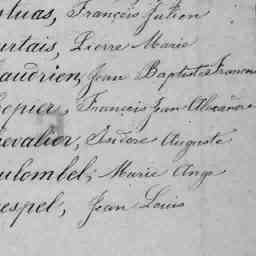 luas, François Julien
urtais, Pierre Marie
audrien, Jean Baptiste François
opier, François Jean Alexandre
hevalier, Isidore Auguste
ulombel, Marie Ange
espel, Jean Louis